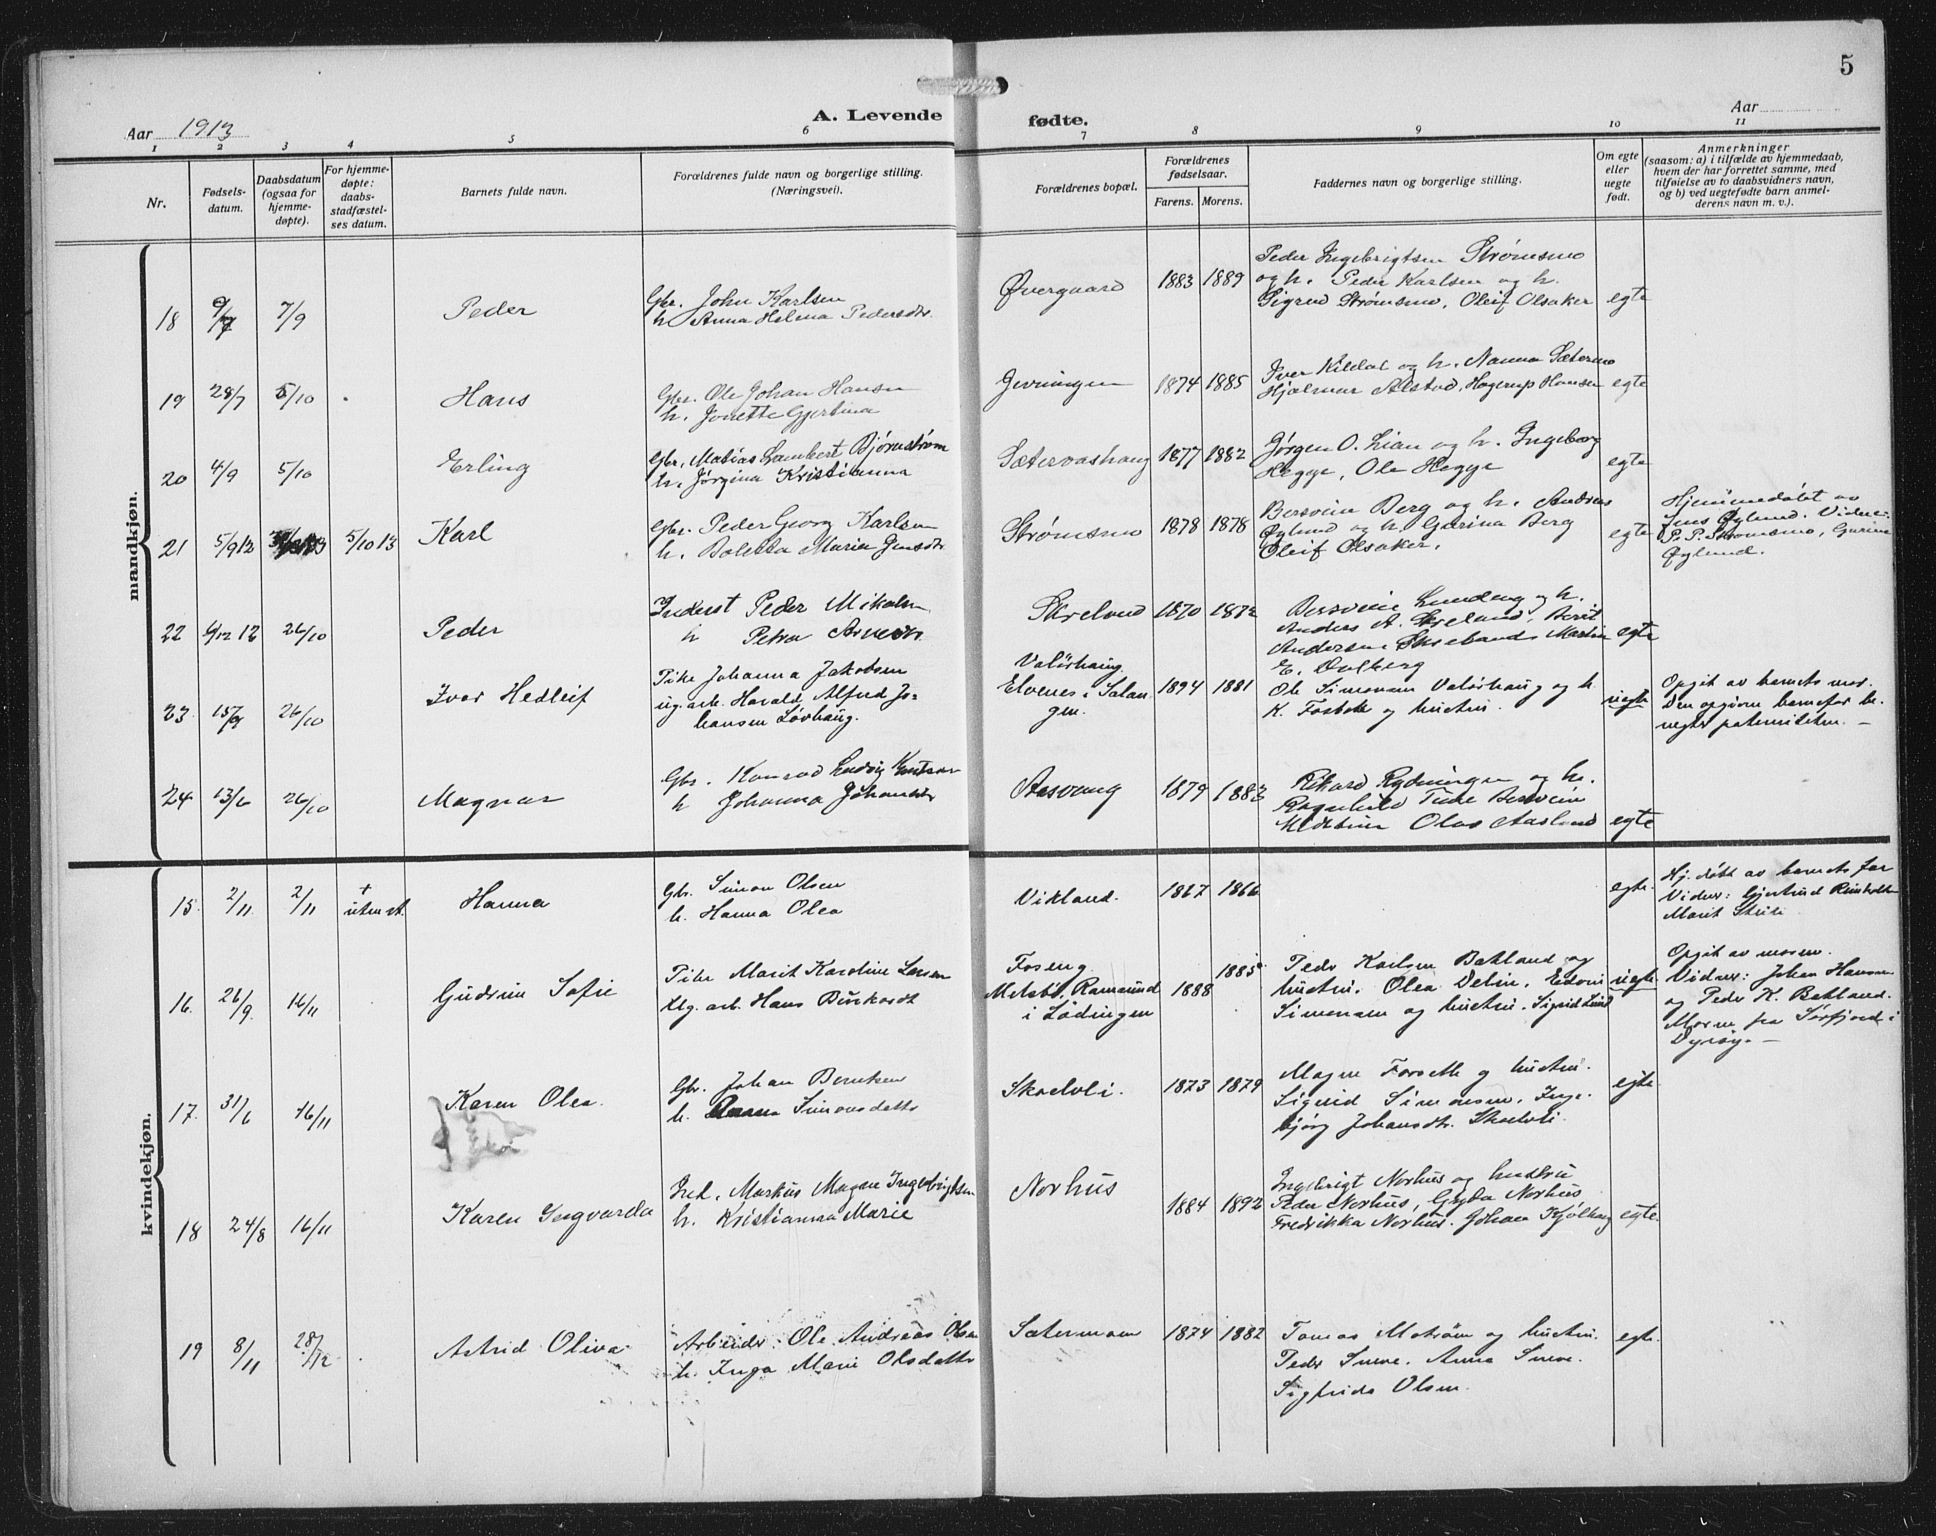 5
Aar 1913
A. Levende
fødte.
Aar
1 2 3 4 5 6 7 8 9 10 11
Nr.
Fødsels-
datum.
Daabsdatum
(ogsaa for
hjemme-
døpte).
For hjemme-
døpte:
daabs-
stadfæstel-
ses datum.
Barnets fulde navn.
Forældrenes fulde navn og borgerlige stilling.
(Næringsvei).
Forældrenes bopæl.
Forældrenes
fødselsaar.
Farens. Morens.
Faddernes navn og borgerlige stilling.
Om egte
eller
uegte
født.
Anmerkninger
(saasom: a) i tilfælde av hjemmedaab,
hvem der har forrettet samme, med
tilføielse av to daabsvidners navn,
og b) ved uegtefødte barn anmel-
derens navn m. v.).
mandkjøn.
18 9/7 7/9 Peder
Gbr. John Karlsen
h. Anna Helena Pedersdtr.
Øvergaard 1883 1889
Peder Ingebrigtsen Strømsmo
og h. Peder Karlsen og h.
Sigrid Strømsmo, Oleif Olsaker
egte
19 28/7 5/10 Hans
Gbr. Ole Johan Hansen
h. Jonette Gjertina
Gevningen 1874 1885
Iver Kildal og h. Nanna Sætermo
Hjalmar Alstad, Hagerup Hansen
egte
20 4/9 5/10 Erling
Gbr. Matias Lambert Bjørnstrøm
h. Jørgina Kristianna
Sætervashaug 1877 1882
Jørgen O. Lian og h. Ingeborg
Hegge, Ole Hegge
egte
21 5/9 12 5/10 13 Karl
Gbr. Peder Georg Karlsen
h. Boletta Maria Jensdtr
Strømsmo 1878 1878
Bersvein Berg og h. Andreas
Øylund og h. Gurina Berg
Oleif Olsaker.
egte
Hjemmedøbt av
Jens Øylund. Vidner:
P. P. Strømsmo, Gurina
Øylund.
22 6/12 12 26/10 Peder
Inderst Peder Mikalsen
h Petra Arnesdtr.
Skrelund 1870 1872
Bersvein Lundeng og h.
Anders A. Skreland, Berit
Andersen Skrelands Martin
E. Dalberg
egte
23 15/9 26/10 Ivar Hedleif
Pike Johanna Jakobsen
ug. arb. Harald Alfred Jo-
hansen Løvhaug.
Valørhaug
Elvenes i Salan
gen.
1894 1881
Ole Simonsen Valørhaug og h
K. Fosbak og hustru.
uegte
Opgit av barnets mor.
Den opgivne barnefar be-
negter paterniteten. —
24 13/6 26/10 Magnar
Gbr. Konrad Ludvig Knutsen
h Johanna Johansdtr
Aasvang 1879 1883
Rikard Rydningen og h.
Ragnhild Tune Bersvein
Olav Aasland
egte
kvindekjøn.
15. 2/11 2/11 + Hanna
Gbr. Simon Olsen
h. Hanna Olea
Vikland. 1867 1866
egte.
Hj. døbt av barnets far
Vidner: Gjertrud
Marit Stile
16. 26/9. 16/11 Gudrun Sofie
Pike Marit Karoline Larsen
Ug. arb. Hans Burkardt
Foseng.
Melsbø, Ramsund
i Lødingen
1888 1885
Peder Karlsen Bakland og
hustru. Olea Delin, Edvin
Simonsen og hustru. Sigrid Lund
uegte.
Opgit av moren.
Vidner: Johan Hansen
og Peder K. Bakland.
Moren fra Sørfjord i
Dyrøy. —
17. 31/6 16/11 Karen Olea.
Gbr. Johan Berntsen
h. Anna Simonsdatter
Skoelvli. 1873 1879
Magne Forseth og hustru.
Sigurd Simonsen. Inge-
bjørg Johansdtr. Skoelvli.
egte
18 24/8 16/11 Karen Ingvarda
Ind. Markus Magne Ingebrigtsen
h. Kristianna Marie
Norhus 1884 1892
Ingebrigt Norhus og hustru
Peder Norhus, Gryda Norhus
Fredrikka Norhus. Johan Kjølhaug
egte.
19 8/11 28/12 Astrid Oliva
Arbeider Ole Andreas Olsen
h. Inga Marie Olsdatter
Sætermoen 1874 1882
Tomas Moström og hustru.
Peder Sneve. Anna Sneve.
Sigfrida Olsen.
egte.